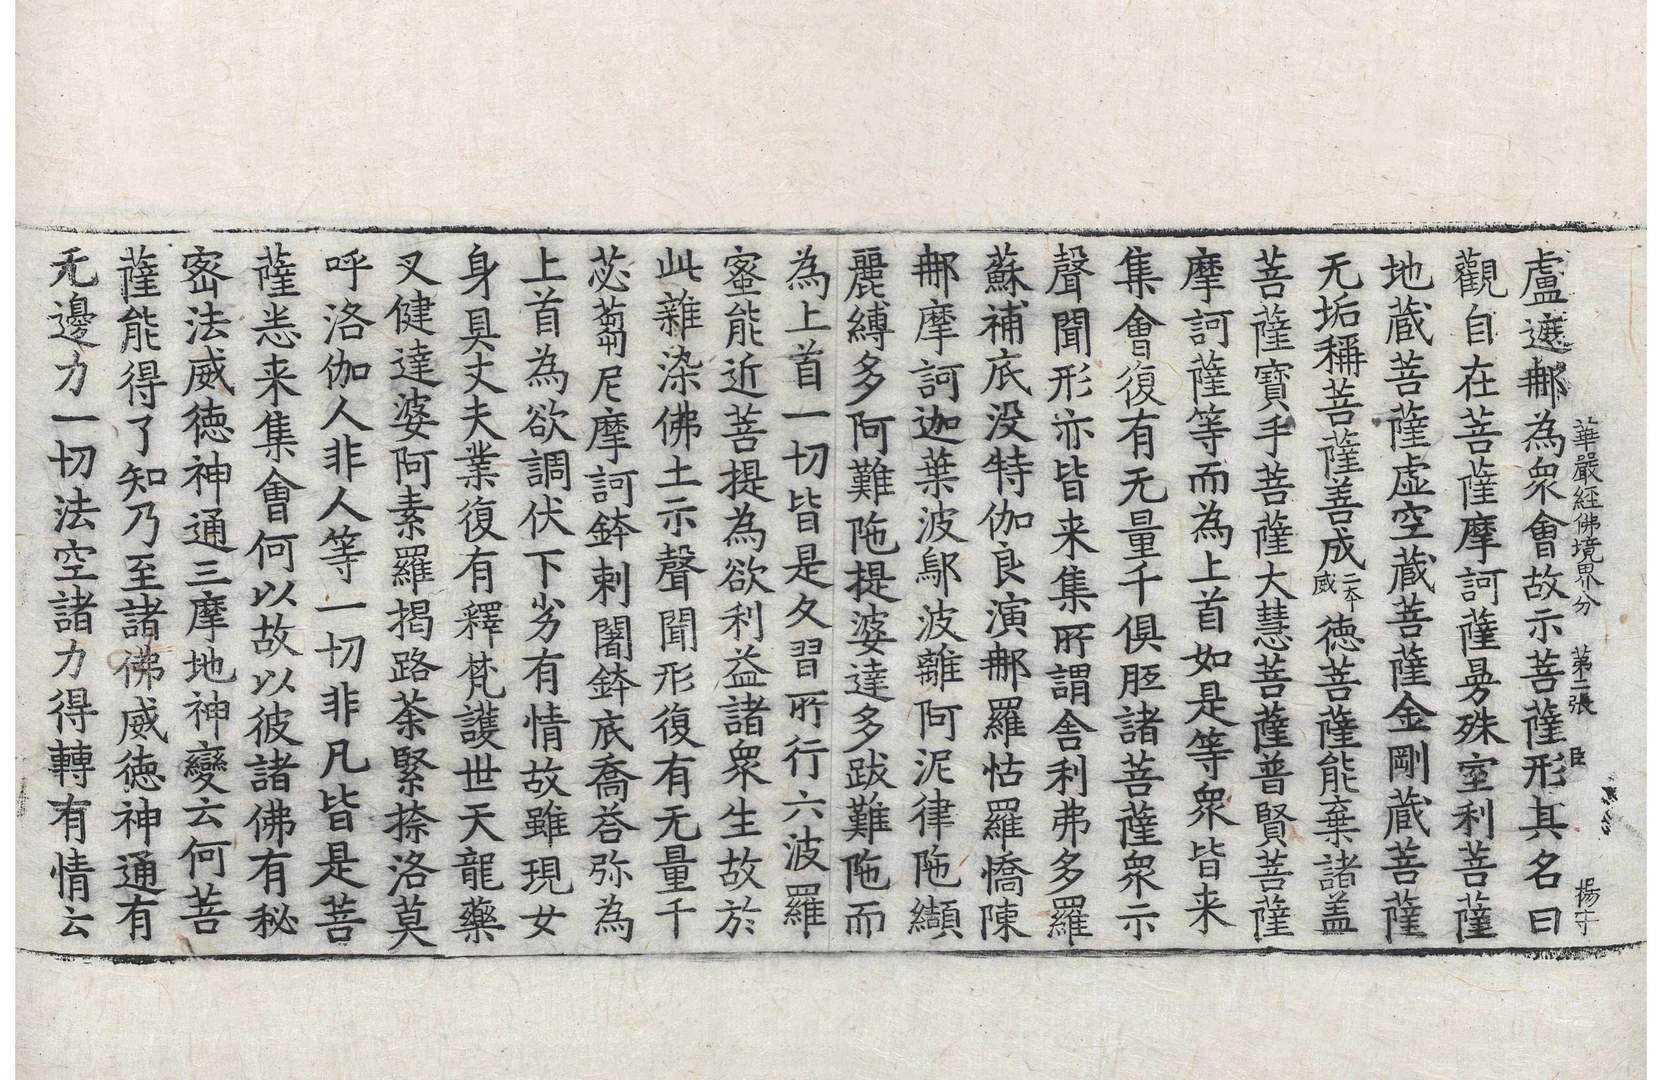 華嚴經佛境界分　第二張　臣　楊寸
盧遮郍為衆會故示菩薩形其名曰
觀自在菩薩摩訶薩曼殊室利菩薩
地蔵菩薩虛空蔵菩薩金剛蔵菩薩
无垢稱菩薩善成二本威德菩薩能棄諸盖
菩薩寶手菩薩大慧菩薩普賢菩薩
摩訶薩等而為上首如是等衆皆来
集會復有无量千俱胝諸菩薩衆示
聲聞形亦皆来集所謂舍利弗多羅
蘇補底没特伽良演郍羅怙羅憍陳
郍摩訶迦葉波鄔波離阿泥律陁纈
麗縛多阿難陁提婆達多跋難陁而
為上首一切皆是久習所行六波羅
蜜能近菩提為欲利益諸衆生故於
此雜染佛土示聲聞形復有无量千
苾蒭尼摩訶鉢剌闍鉢底喬荅弥為
上首為欲調伏下劣有情故雖現女
身具丈夫業復有釋梵護世天龍藥
叉健達婆阿素羅揭路荼緊捺洛莫
呼洛伽人非人等一切非凡皆是菩
薩悉来集會何以故以彼諸佛有秘
密法威德神通三摩地神變云何菩
薩能得了知乃至諸佛威德神通有
无邊力一切法空諸力得轉有情云